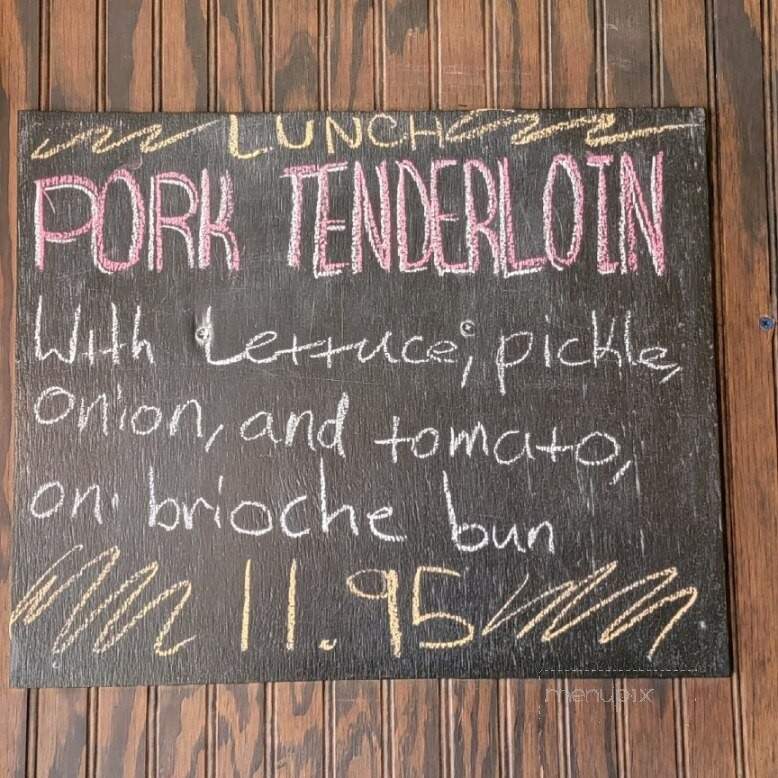 LUNCH
PORK TENDERLOIN
With Lettuce, pickle,
onion, and tomato,
on brioche bun
11.95
menupix